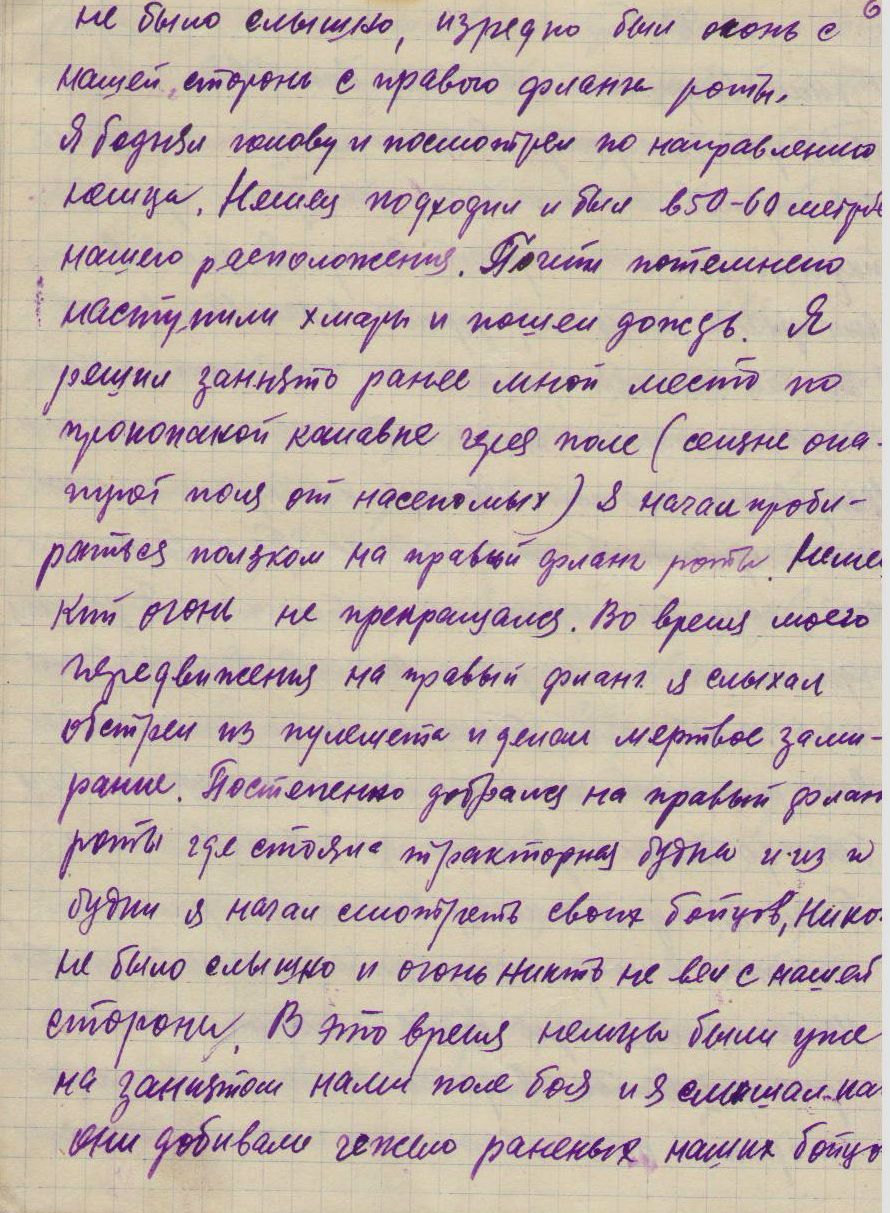 6
не было слышно, изредко был огонь с
нашей стороны с правого фланга роты.
Я боднял голову и посмотрел по направлению
немца. Немец подходил и был в 50-60 метров
нашего расположения. Почти потемнело
наступили хмары и пошел дождь. Я
решил занять ранее мной место по
прокопаной канавке через поле (
поля от насекомых) я начал проби-
раться ползком на правый фланг роты. Неме
кий огонь не прекращался. Во время моего
передвижения на правый фланг я слыхал
обстрел из пулемета и делал мертвое зами-
рание. Постепенно добрался на правый флан
роты где стояла тракторная будка и из
будки я начал смотреть своих бойцов, Нико
не было слышно и огонь никто не вел с нашей
стороны. В это время немцы были уже
на занятом нами поле боя и я слышал ка
они добивали тежело раненых наших бойцо